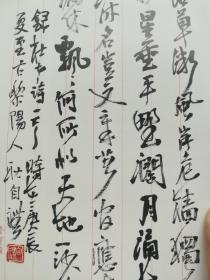 草微風岸危樯獨
星垂平野闊月涌
流名豈文章著官應
休飄飄何所似天地一沙
錄杜甫詩一首時在庚辰
夏至古黎陽人耿自禮